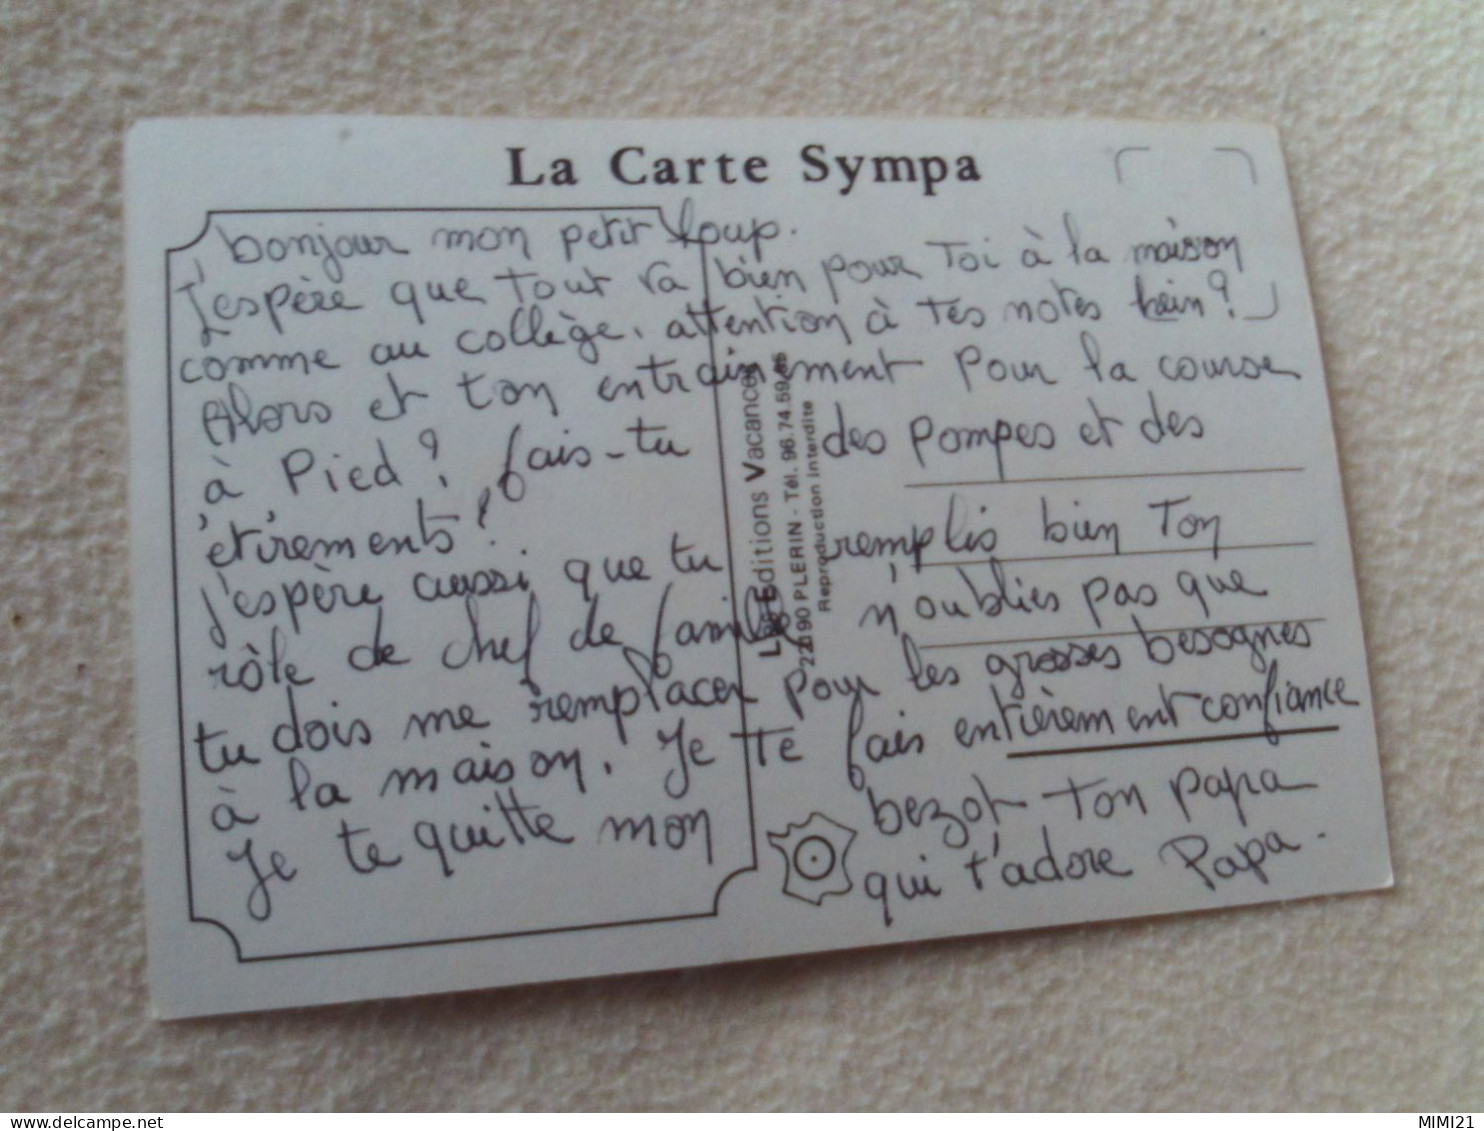 La Carte Sympa
bonjour mon petit loup.
J'espère que tout va bien pour toi à la maison
comme au collège. attention à tes notes hein?
Alors et ton entrainement pour la course
à pied? fais-tu des pompes et des
étirements?
j'espère aussi que tu remplis bien ton
rôle de chef de famille n'oublies pas que
tu dois me remplacer pour les grosses besognes
à la maison. Je te fais entièrement confiance
Je te quitte mon bezot ton papa
qui t'adore Papa.
Les Editions Vacances
22190 PLERIN - Tél. 96.74.59
Reproduction interdite
MIMI21